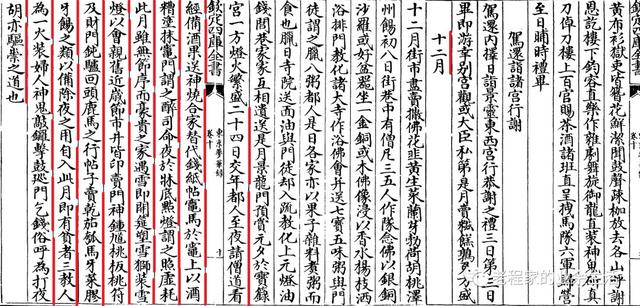 黄布衫獄吏皆簪花鮮潔聞鼓聲疎枷放去各山呼謝
恩訖樓下鈞容直樂作雜劇舞旋御龍直裝神鬼斫真
刀倬刀樓上百官賜茶酒諸班直呈拽馬隊六軍歸營
至日晡時禮畢
駕還詣諸宫行謝
駕還内擇日詣景靈東西宫行恭謝之禮三日第三日
畢即游幸别宫觀或大臣私第是月賣糍糕鵪兔方盛
十二月
十二月街市盡賣撒佛花韭黄生菜蘭芽勃荷胡桃澤
州餳初八日街巷中有僧尼三五人作隊念佛以銀銅
沙羅或好盆器坐一金銅或木佛像浸以香水楊枝洒
浴排門教化諸大寺作浴佛會并送七寳五味粥與門
徒謂之臘八粥都人是日各家亦以果子雜料煮粥而
食也臘日寺院送面油與門徒却入疏教化上元燈油
錢閭巷家家互相遺送是月景龍門預賞元夕於寳籙
欽定四庫全書
東京夢華録
卷十
宫一方燈火繁盛二十四日交年都人至夜請僧道看
經備酒果送神燒合家替代錢紙帖竈馬於竈上以酒
糟塗抹竈門謂之醉司命夜於牀底點燈謂之照虛耗
此月雖無節序而豪貴之家遇雪即開筵塑雪獅裝雪
燈以會親舊近歲節市井皆印賣門神鍾馗桃板桃符
及財門鈍驢回頭鹿馬之行帖子賣乾茄瓠馬牙菜膠
牙餳之類以備除夜之用自入此月即有貧者三教人
為一火裝婦人神鬼敲鑼擊鼓巡門乞錢俗呼為打夜
胡亦驅祟之道也